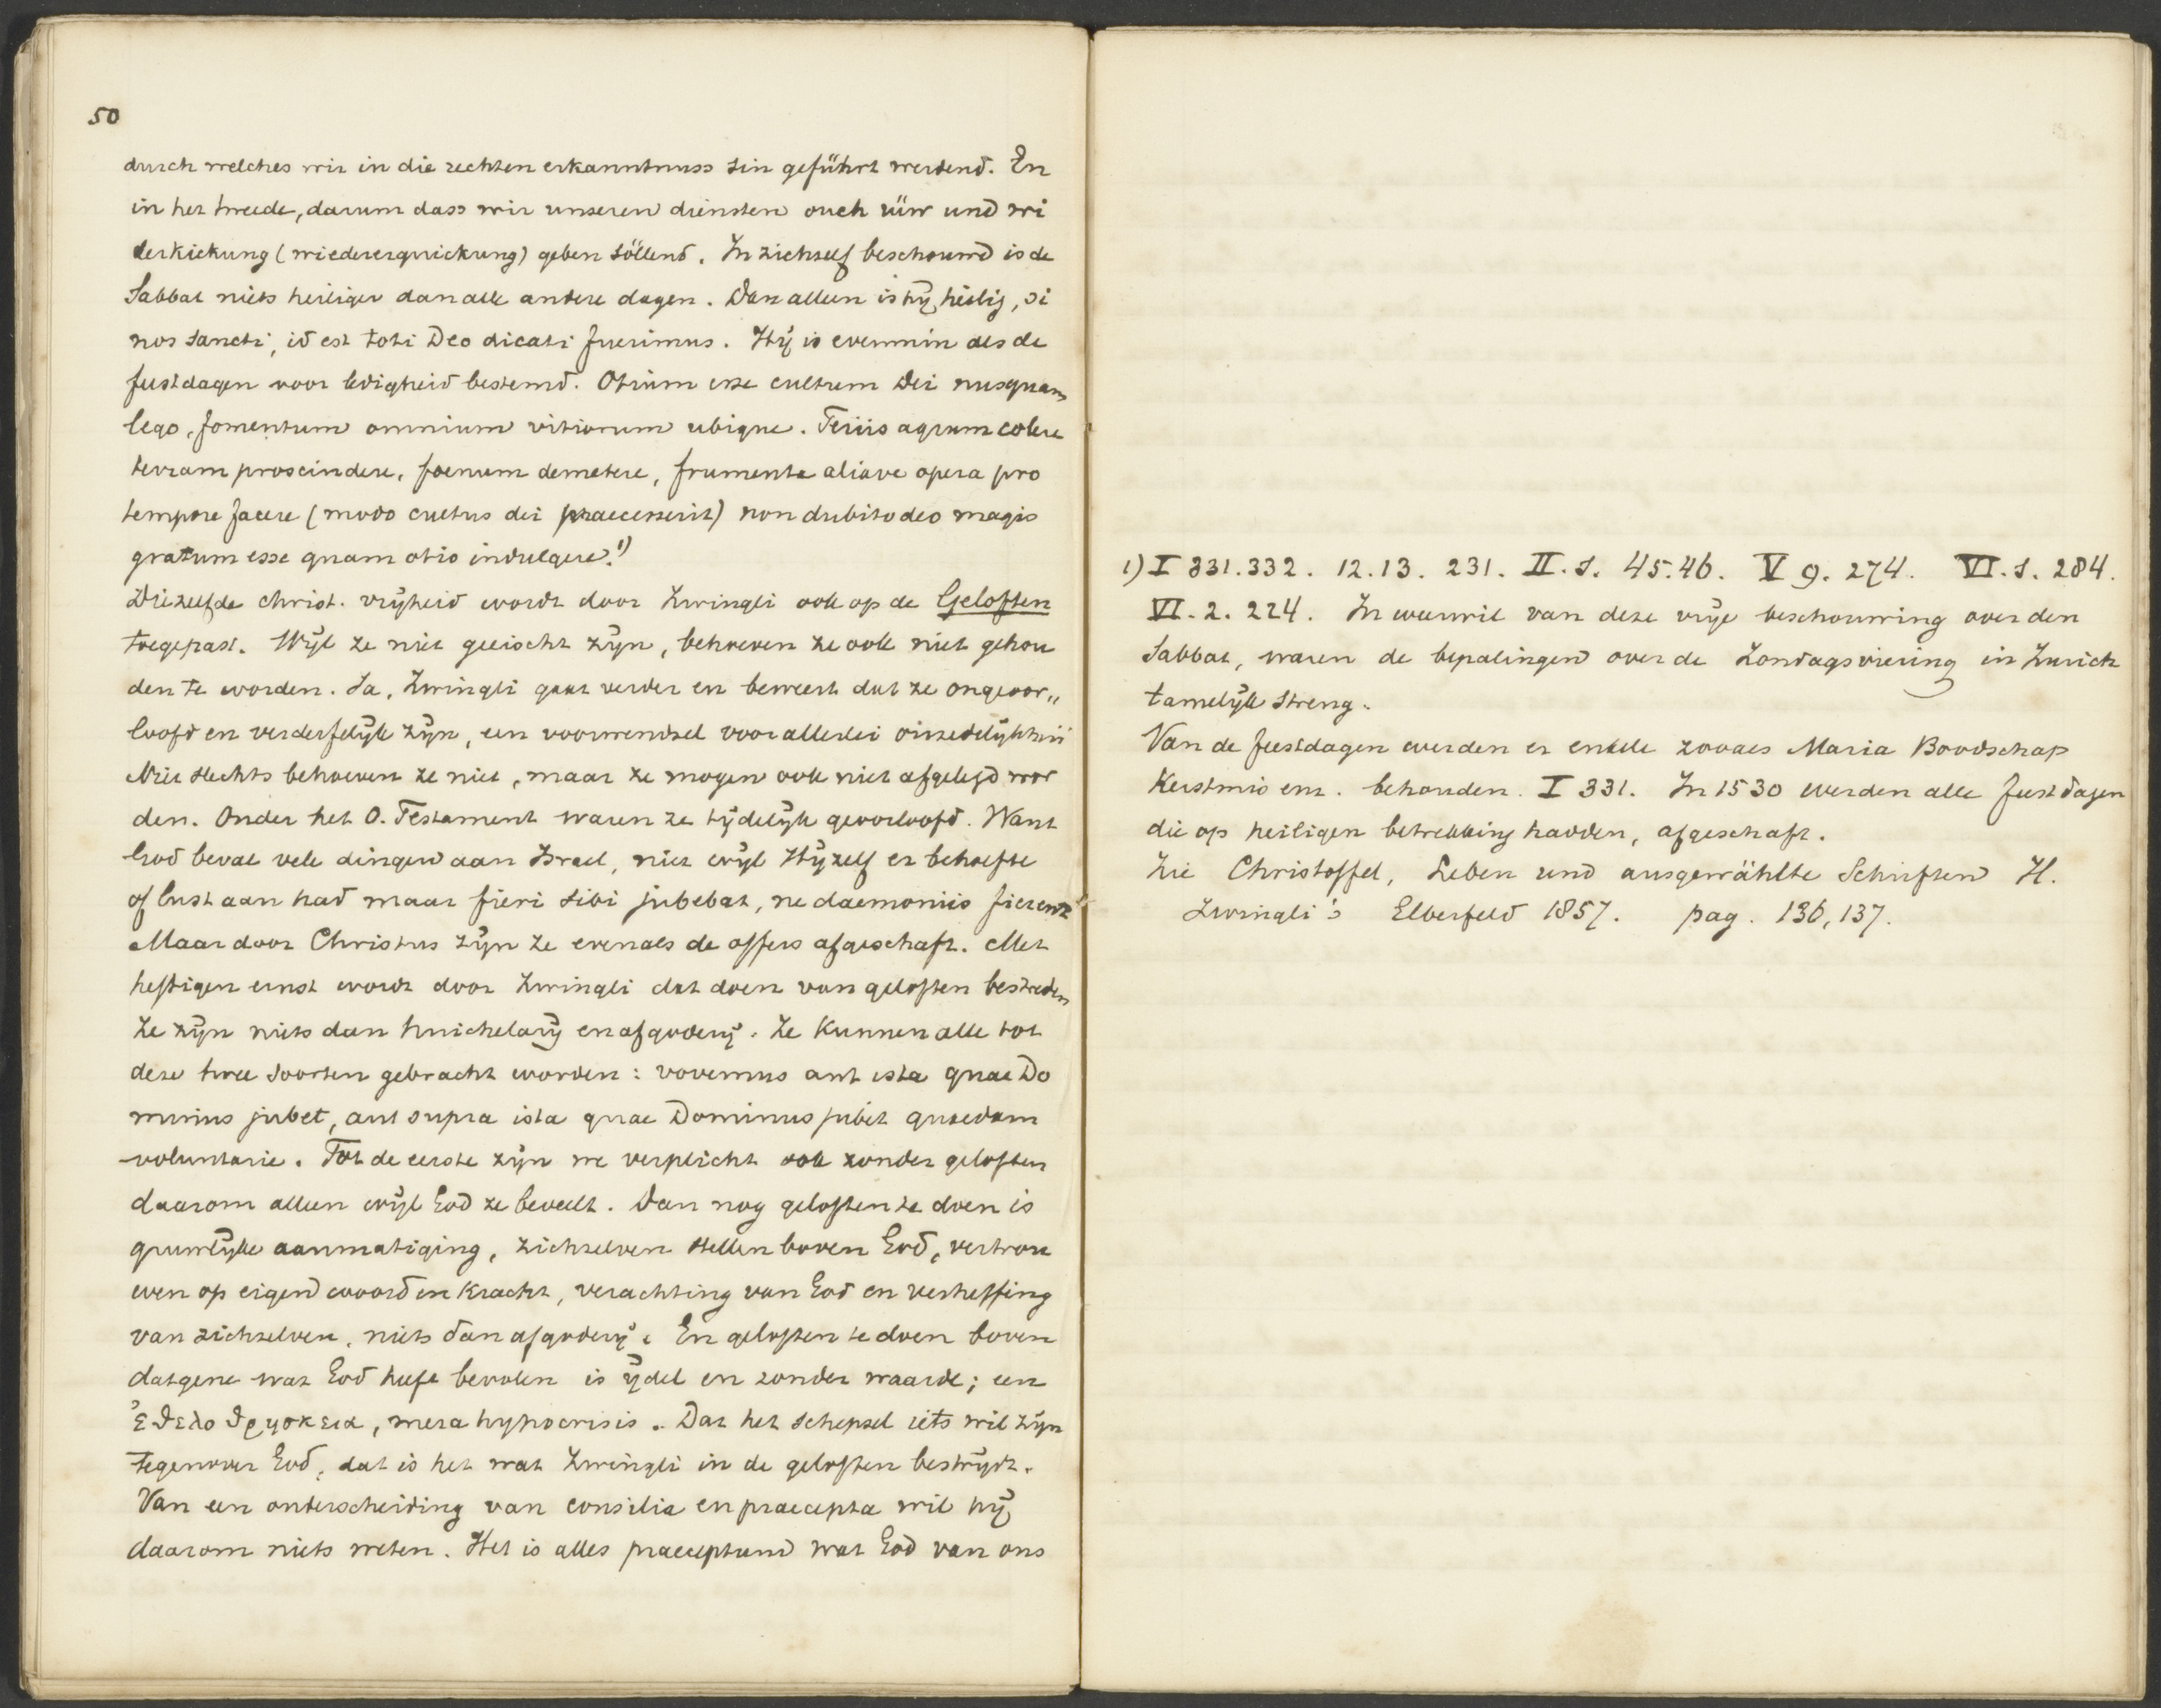 50
durch welches wir in die rechten erkanntnuss sin geführt werdend. En
in het tweede, darum dass wir unseren diensten ouch rüw und wi
derkickung (wiedererquickung) geben söllend. In zichzelf beschouwd is de
Sabbat niets heiliger dan alle andere dagen. Dan alleen is hij heilig, si
nos sancti, id est toti Deo dicati fuerimus. Hij is evenmin als de
feestdagen voor ledigheid bestemd. Otium esse cultum Dei nusquam
lego, fomentum omnium vitiorum ubique. Feriis agrum colere
terram proscindere, foenum demetere, frumenta aliave opera pro
tempore facere (modo cultus dei praecesserit) non dubito deo magis
gratum esse quam otio indulgere.1)
Diezelfde christ. vrijheid wordt door Zwingli ook op de Geloften
toegepast. Wijl ze niet geeischt zijn, behoeven ze ook niet gehou
den te worden. Ja, Zwingli gaat verder en beweert dat ze ongeoor„
loofd en verderfelijk zijn, een voorwendsel voor allerlei onzedelijkheid
Niet slechts behoeven ze niet, maar ze mogen ook niet afgelegd wor
den. Onder het O. Testament waren ze tijdelijk geoorloofd. Want
God beval vele dingen aan Israel, niet wijl Hijzelf er behoefte
of lust aan had maar fieri sibi jubebat, ne daemoniis fierent
Maar door Christus zijn ze evenals de offers afgeschaft. Met
heftigen ernst wordt door Zwingli dat doen van geloften bestreden
Ze zijn niets dan huichelarij en afgoderij. Ze kunnen alle tot
deze twee soorten gebracht worden: vovemus aut ista quae Do
minus jubet, aut supra ista quae Dominus jubet quaedam
voluntarie. Tot de eerste zijn we verplicht ook zonder geloften
daarom alleen wijl God ze beveelt. Dan nog geloften te doen is
gruwlijke aanmatiging, zichzelven stellen boven God, vertrou
wen op eigen woord en kracht, verachting van God en verheffing
van zichzelven, niets dan afgoderij. En geloften te doen boven
datgene wat God heeft bevolen is ijdel en zonder waarde; een
ἐθελοθρησκεια, mera hypocrisis. Dat het schepsel iets wil zijn
tegenover God, dat is het wat Zwingli in de geloften bestrijdt.
Van een onderscheiding van consilia en praecepta wil hij
daarom niets weten. Het is alles praeceptum wat God van ons
1) I 331.332. 12.13. 231. II.1. 45.46. V 9. 274. VI.1. 284.
VI.2. 224. In weerwil van deze vrije beschouwing over den
Sabbat, waren de bepalingen over de Zondagsviering in Zurich
tamelijk streng.
Van de feestdagen werden er enkele zooals Maria Boodschap
Kerstmis enz. behouden. I 331. In 1530 werden alle feestdagen
die op heiligen betrekking hadden, afgeschaft.
Zie Christoffel, Leben und ausgewählte Schriften H.
Zwingli's Elberfeld 1857. pag. 136, 137.